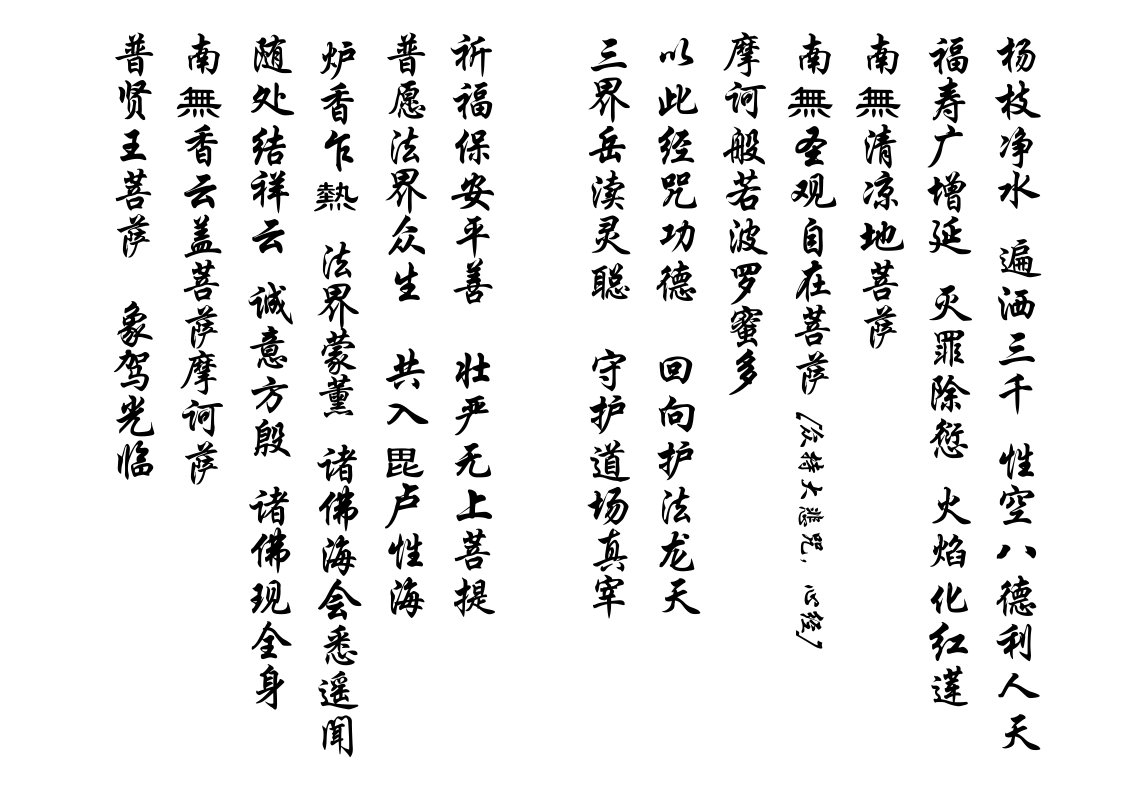 杨枝净水 遍洒三千 性空八德利人天
福寿广增延 灭罪除愆 火焰化红莲
南無清凉地菩萨
南無圣观自在菩萨 [依持大悲咒,心经]
摩诃般若波罗蜜多
以此经咒功德 回向护法龙天
三界岳渎灵聪 守护道场真宰
祈福保安平善 壮严无上菩提
普愿法界众生 共入毘卢性海
炉香乍熱 法界蒙薰 诸佛海会悉遥闻
随处结祥云 诚意方殷 诸佛现全身
南無香云盖菩萨摩诃萨
普贤王菩萨 象驾光临